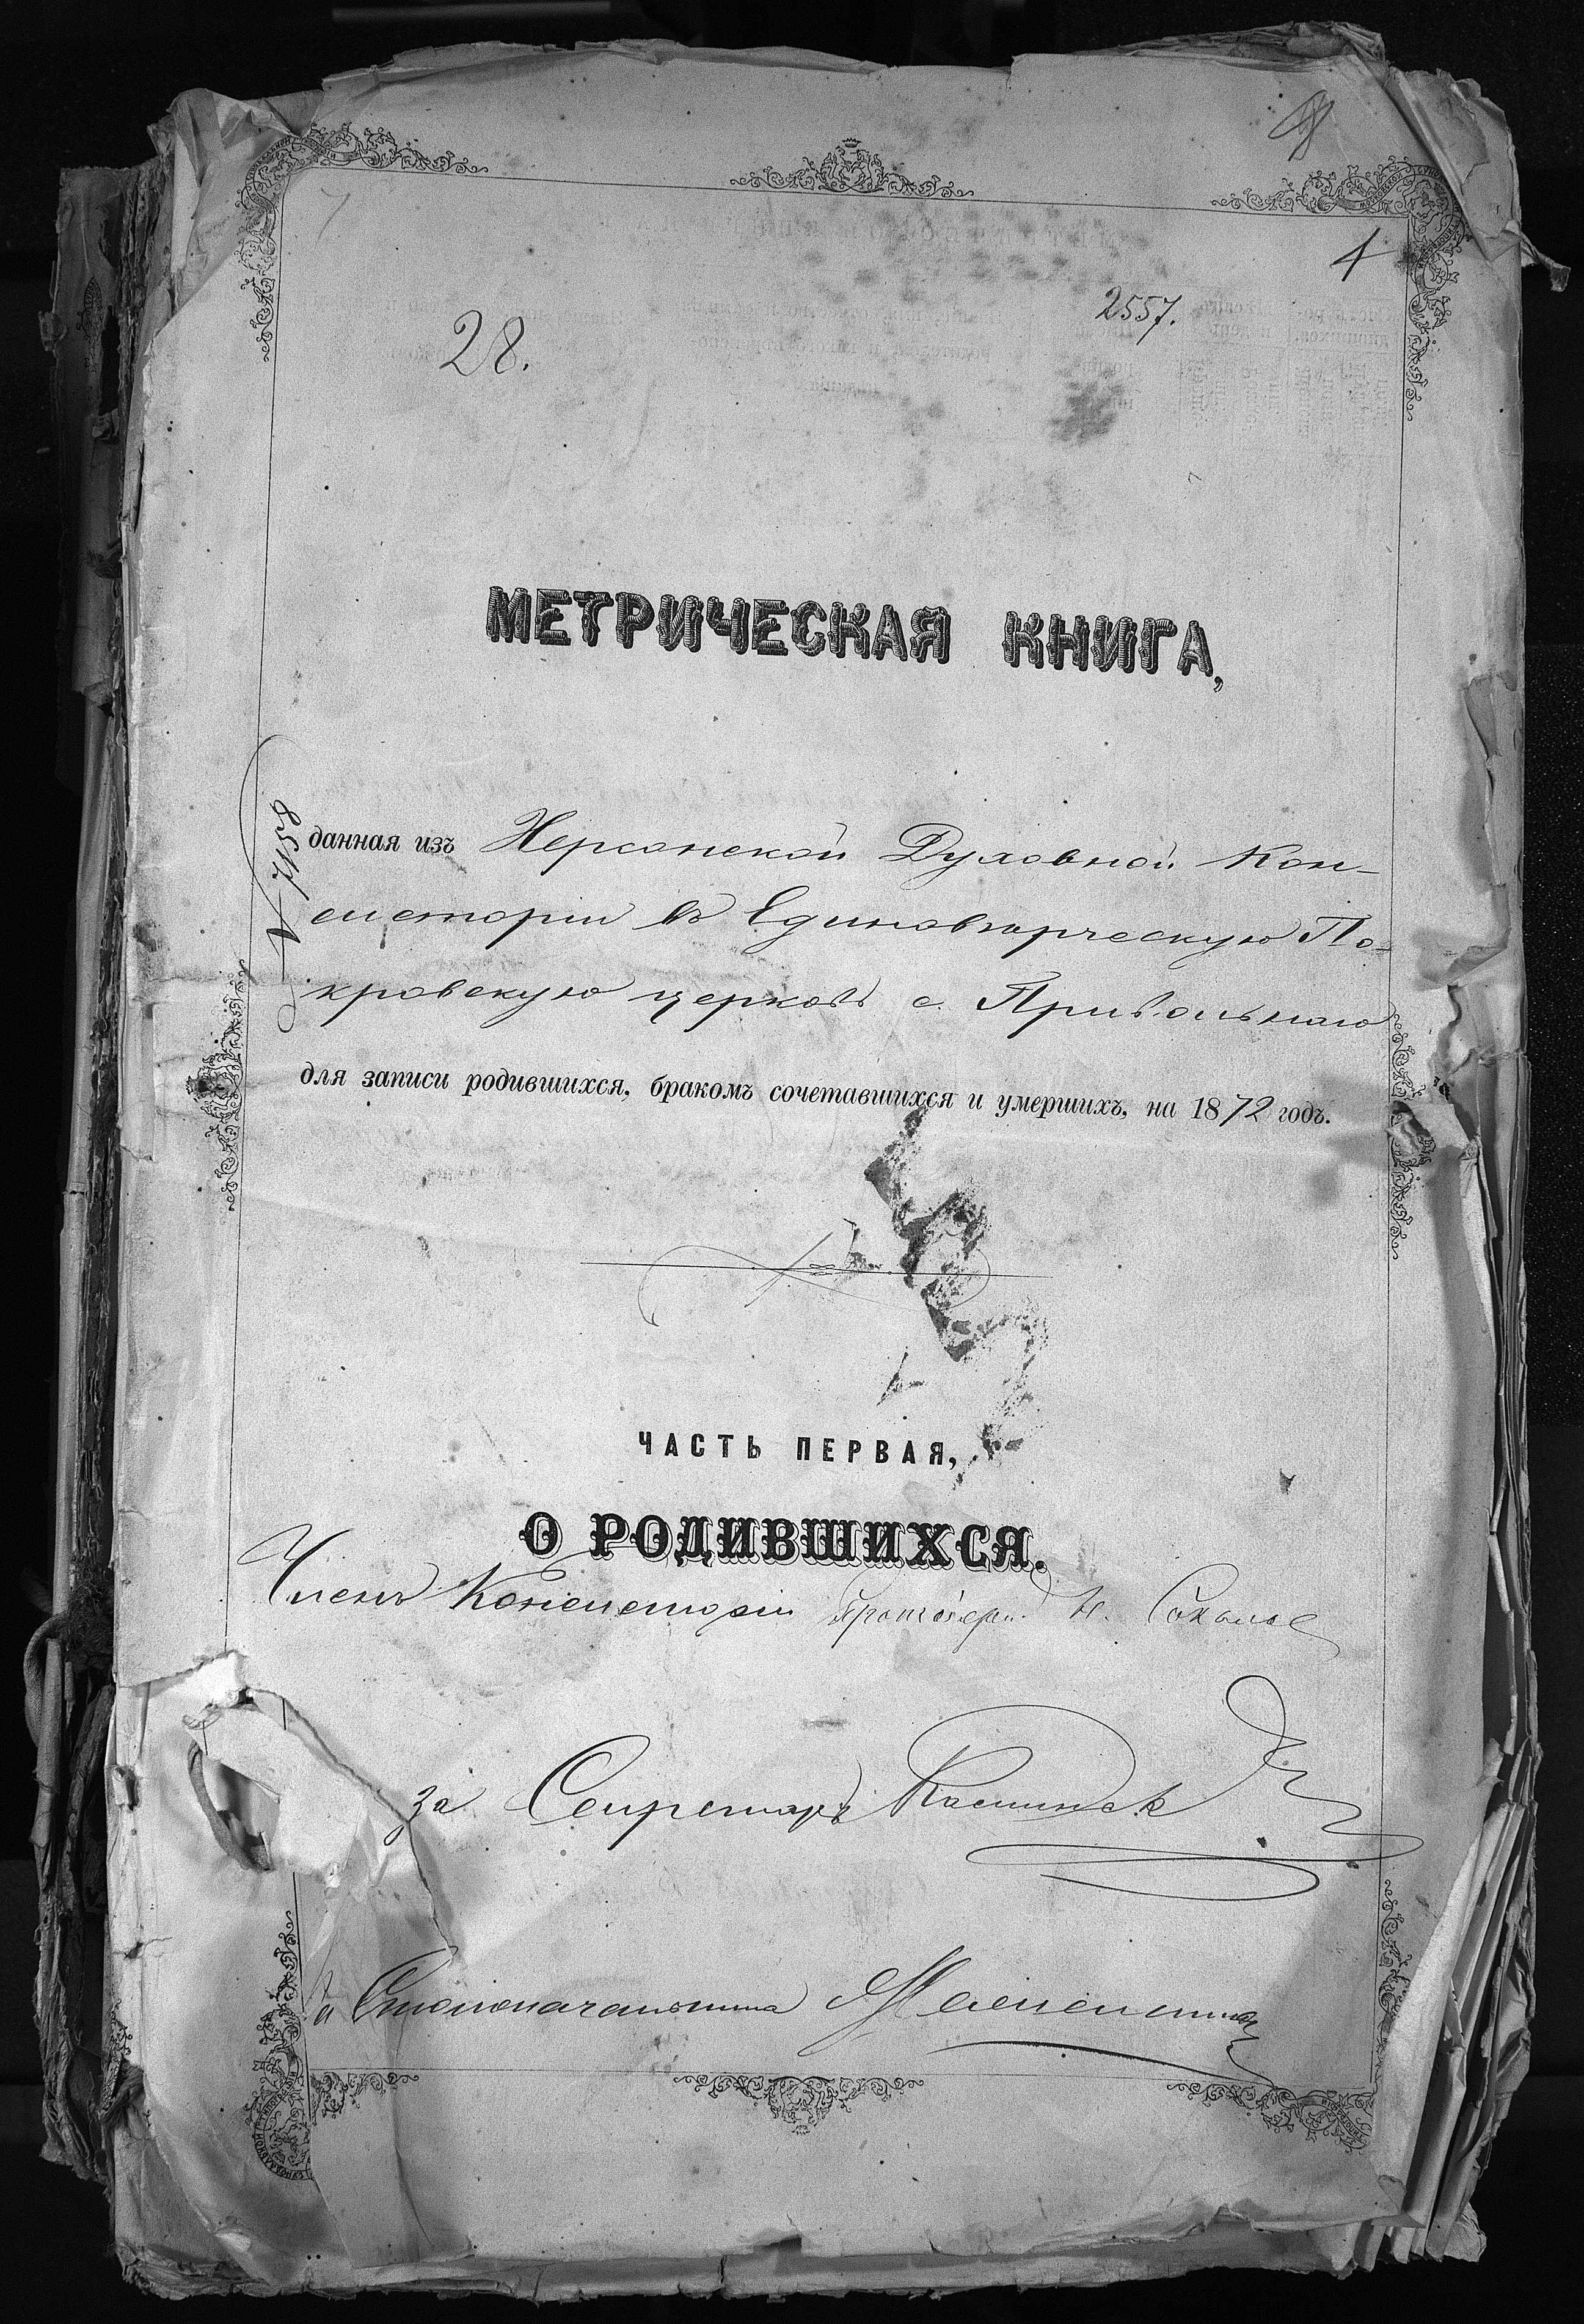 4
28.
2557.
МЕТРИЧЕСКАЯ КНИГА,
№ 7158
данная изъ Херсонской Духовной Кон-
систоріи въ Единовѣрческую По-
кровскую церковь с. Привольнаго
для записи родившихся, бракомъ сочетавшихся и умершихъ, на 1872 годъ.
ЧАСТЬ ПЕРВАЯ,
О РОДИВШИХСЯ.
Членъ Консисторіи Протоіерей Н. Соколов
За Секретаря
За Столоначальника